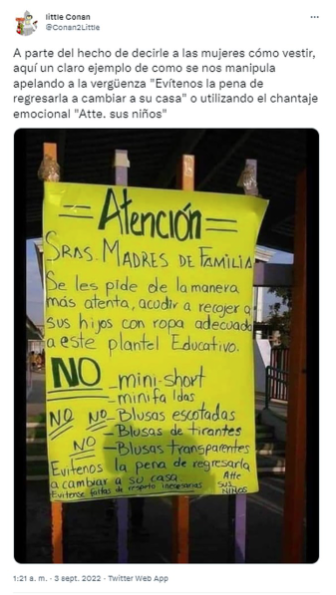 little Conan
@Conan2Little
A parte del hecho de decirle a las mujeres cómo vestir,
aquí un claro ejemplo de como se nos manipula
apelando a la vergüenza "Evítenos la pena de
regresarla a cambiar a su casa" o utilizando el chantaje
emocional "Atte. sus niños"
=Atención=
SRAS. MADRES DE FAMILIA
Se les pide de la manera
más atenta, acudir a recojer a
sus hijos con ropa adecuada
a este plantel Educativo.
NO -mini-short
-minifaldas
NO NO-Blusas escotadas
-Blusas de tirantes
NO -Blusas transparentes
Evitenos la pena de regresarla
a cambiar a su casa. Atte
Evitense faltas de respeto innecesarias SUS
NIÑOS
1:21 a. m. · 3 sept. 2022 · Twitter Web App